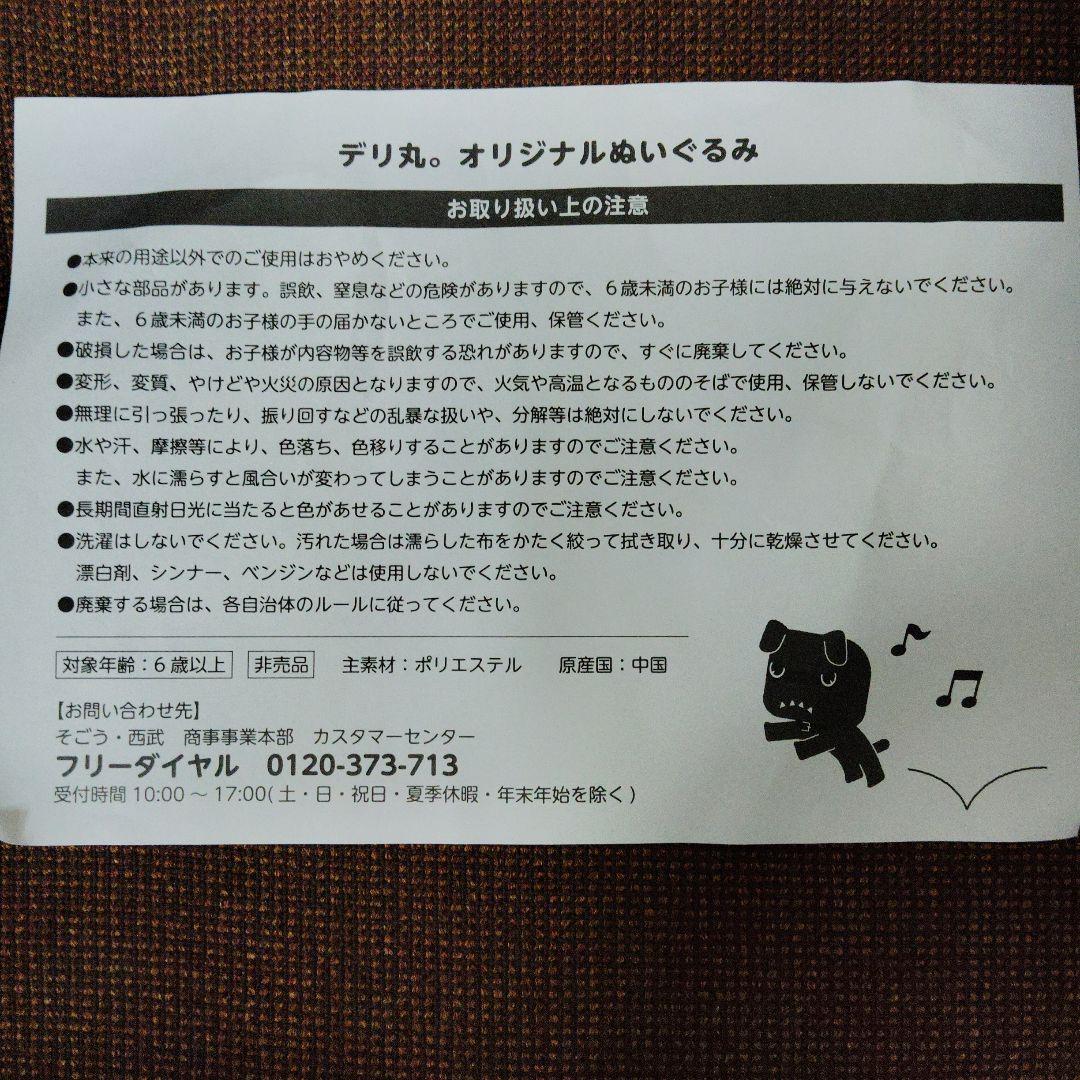 デリ丸。オリジナルぬいぐるみ
お取り扱い上の注意
●本来の用途以外でのご使用はおやめください。
●小さな部品があります。誤飲、窒息などの危険がありますので、６歳未満のお子様には絶対に与えないでください。
また、６歳未満のお子様の手の届かないところでご使用、保管ください。
●破損した場合は、お子様が内容物等を誤飲する恐れがありますので、すぐに廃棄してください。
●変形、変質、やけどや火災の原因となりますので、火気や高温となるもののそばで使用、保管しないでください。
●無理に引っ張ったり、振り回すなどの乱暴な扱いや、分解等は絶対にしないでください。
●水や汗、摩擦等により、色落ち、色移りすることがありますのでご注意ください。
また、水に濡らすと風合いが変わってしまうことがありますのでご注意ください。
●長期間直射日光に当たると色があせることがありますのでご注意ください。
●洗濯はしないでください。汚れた場合は濡らした布をかたく絞って拭き取り、十分に乾燥させてください。
漂白剤、シンナー、ベンジンなどは使用しないでください。
●廃棄する場合は、各自治体のルールに従ってください。
対象年齢：６歳以上 非売品 主素材：ポリエステル 原産国：中国
【お問い合わせ先】
そごう・西武 商事事業本部 カスタマーセンター
フリーダイヤル 0120-373-713
受付時間 10:00 ～ 17:00( 土・日・祝日・夏季休暇・年末年始を除く )